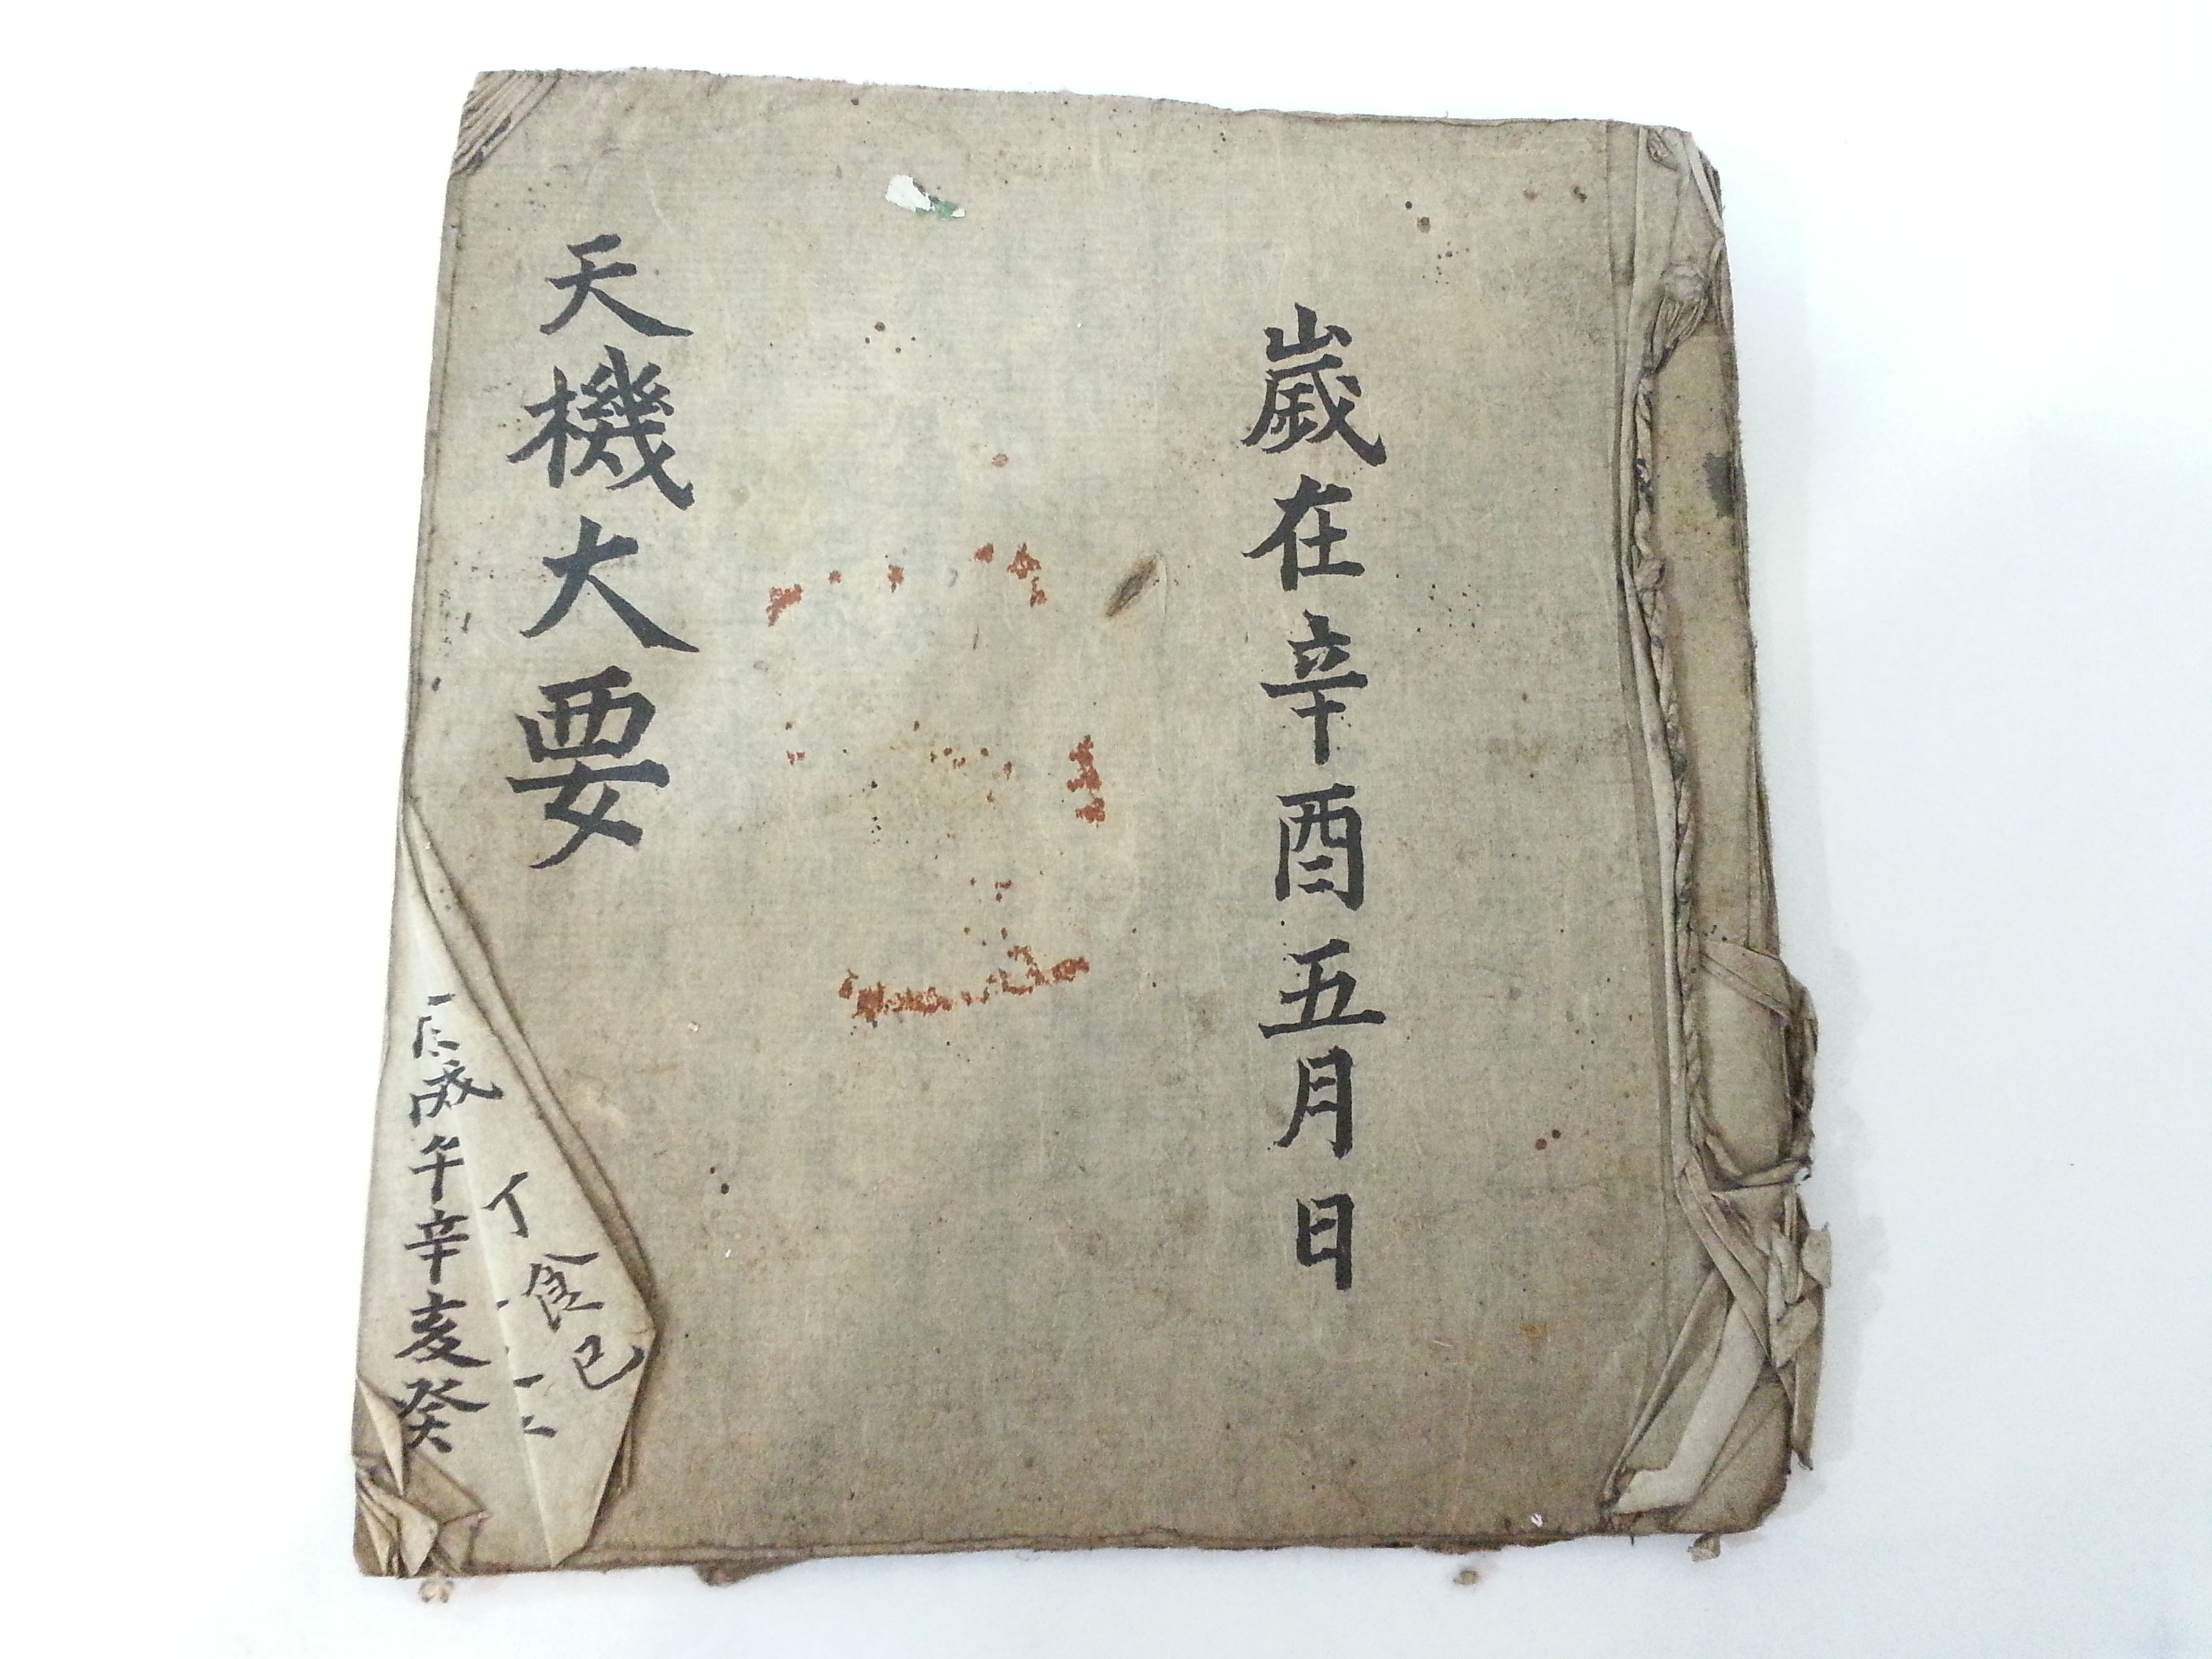 歲在辛酉五月日
天機大要
丁食巳
戌丙午辛亥癸